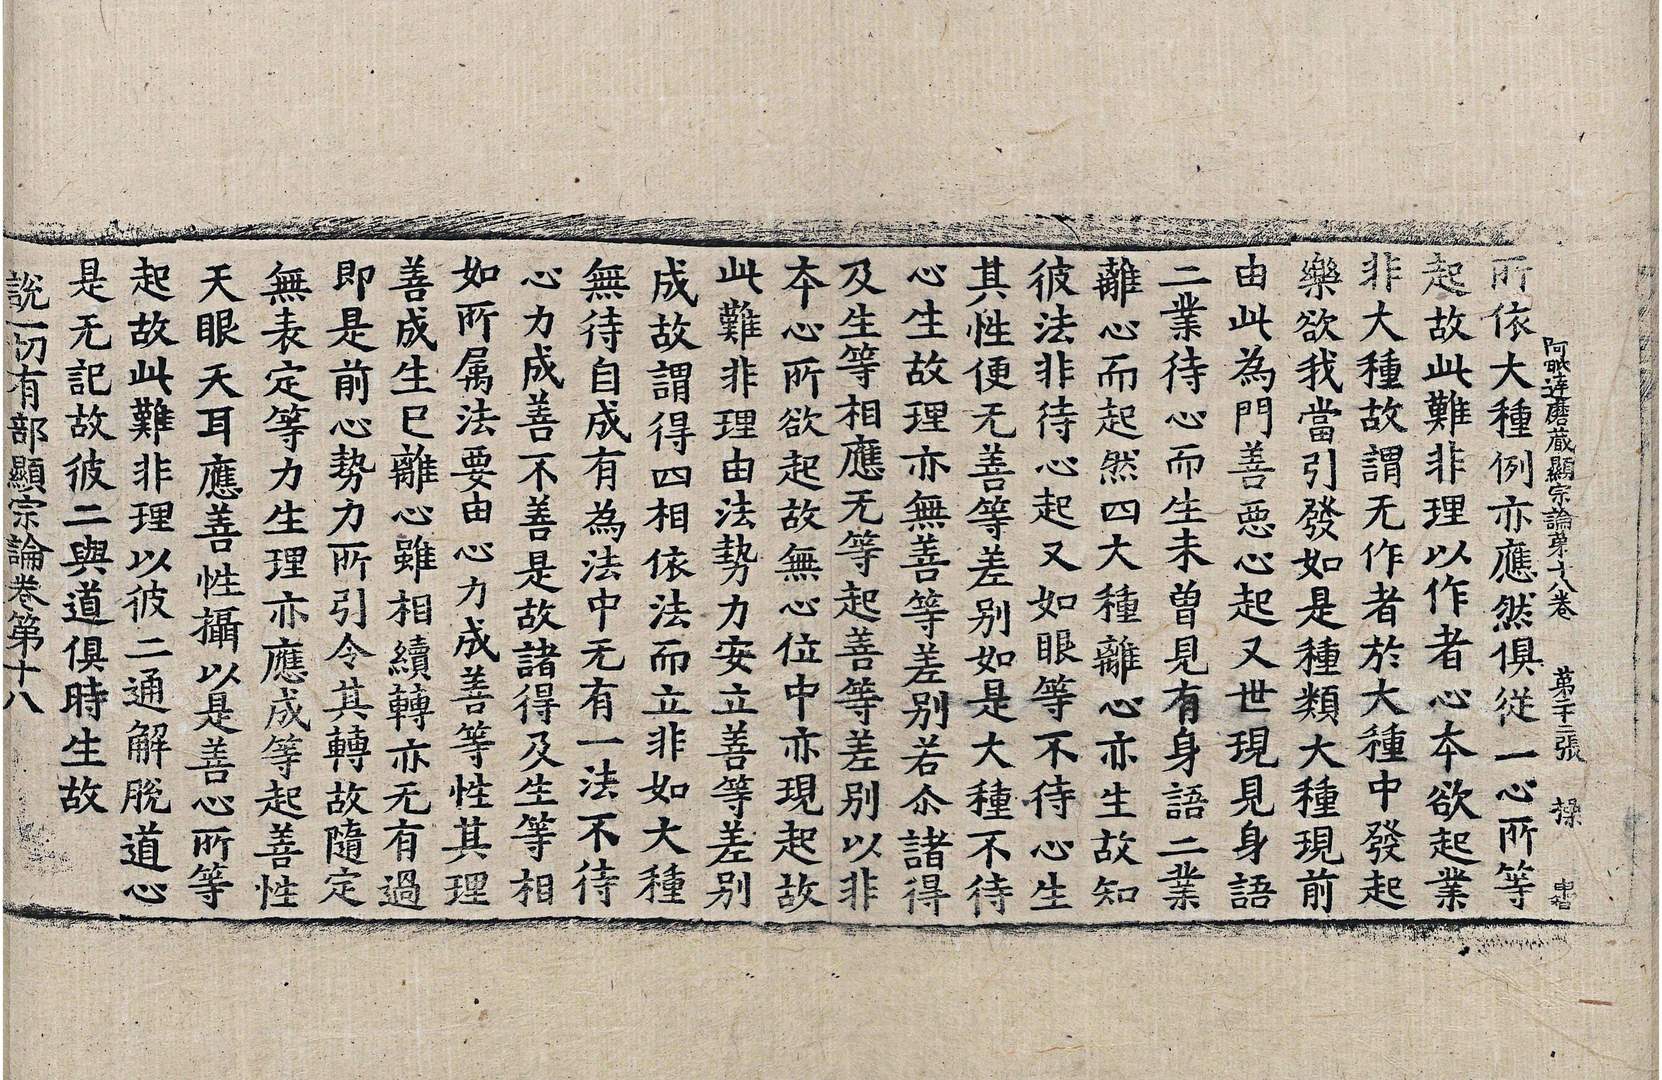 阿毗達磨蔵顯宗論苐十八巻 苐二十三張 操
所依大種例亦應然俱從一心所等
起故此難非理以作者心本欲起業
非大種故謂无作者於大種中發起
樂欲我當引發如是種類大種現前
由此為門善惡心起又世現見身語
二業待心而生未曽見有身語二業
離心而起然四大種離心亦生故知
彼法非待心起又如眼等不待心生
其性便无善等差别如是大種不待
心生故理亦無善等差别若尒諸得
及生等相應无等起善等差别以非
本心所欲起故無心位中亦現起故
此難非理由法勢力安立善等差别
成故謂得四相依法而立非如大種
無待自成有為法中无有一法不待
心力成善不善是故諸得及生等相
如所属法要由心力成善等性其理
善成生已離心雖相續轉亦无有過
即是前心勢力所引令其轉故隨定
無表定等力生理亦應成等起善性
天眼天耳應善性攝以是善心所等
起故此難非理以彼二通解脫道心
是无記故彼二與道俱時生故
說一切有部顯宗論卷第十八